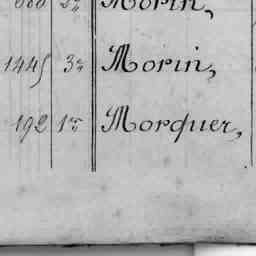 Morin,
1445 3e Morin,
192 1er Morquer,